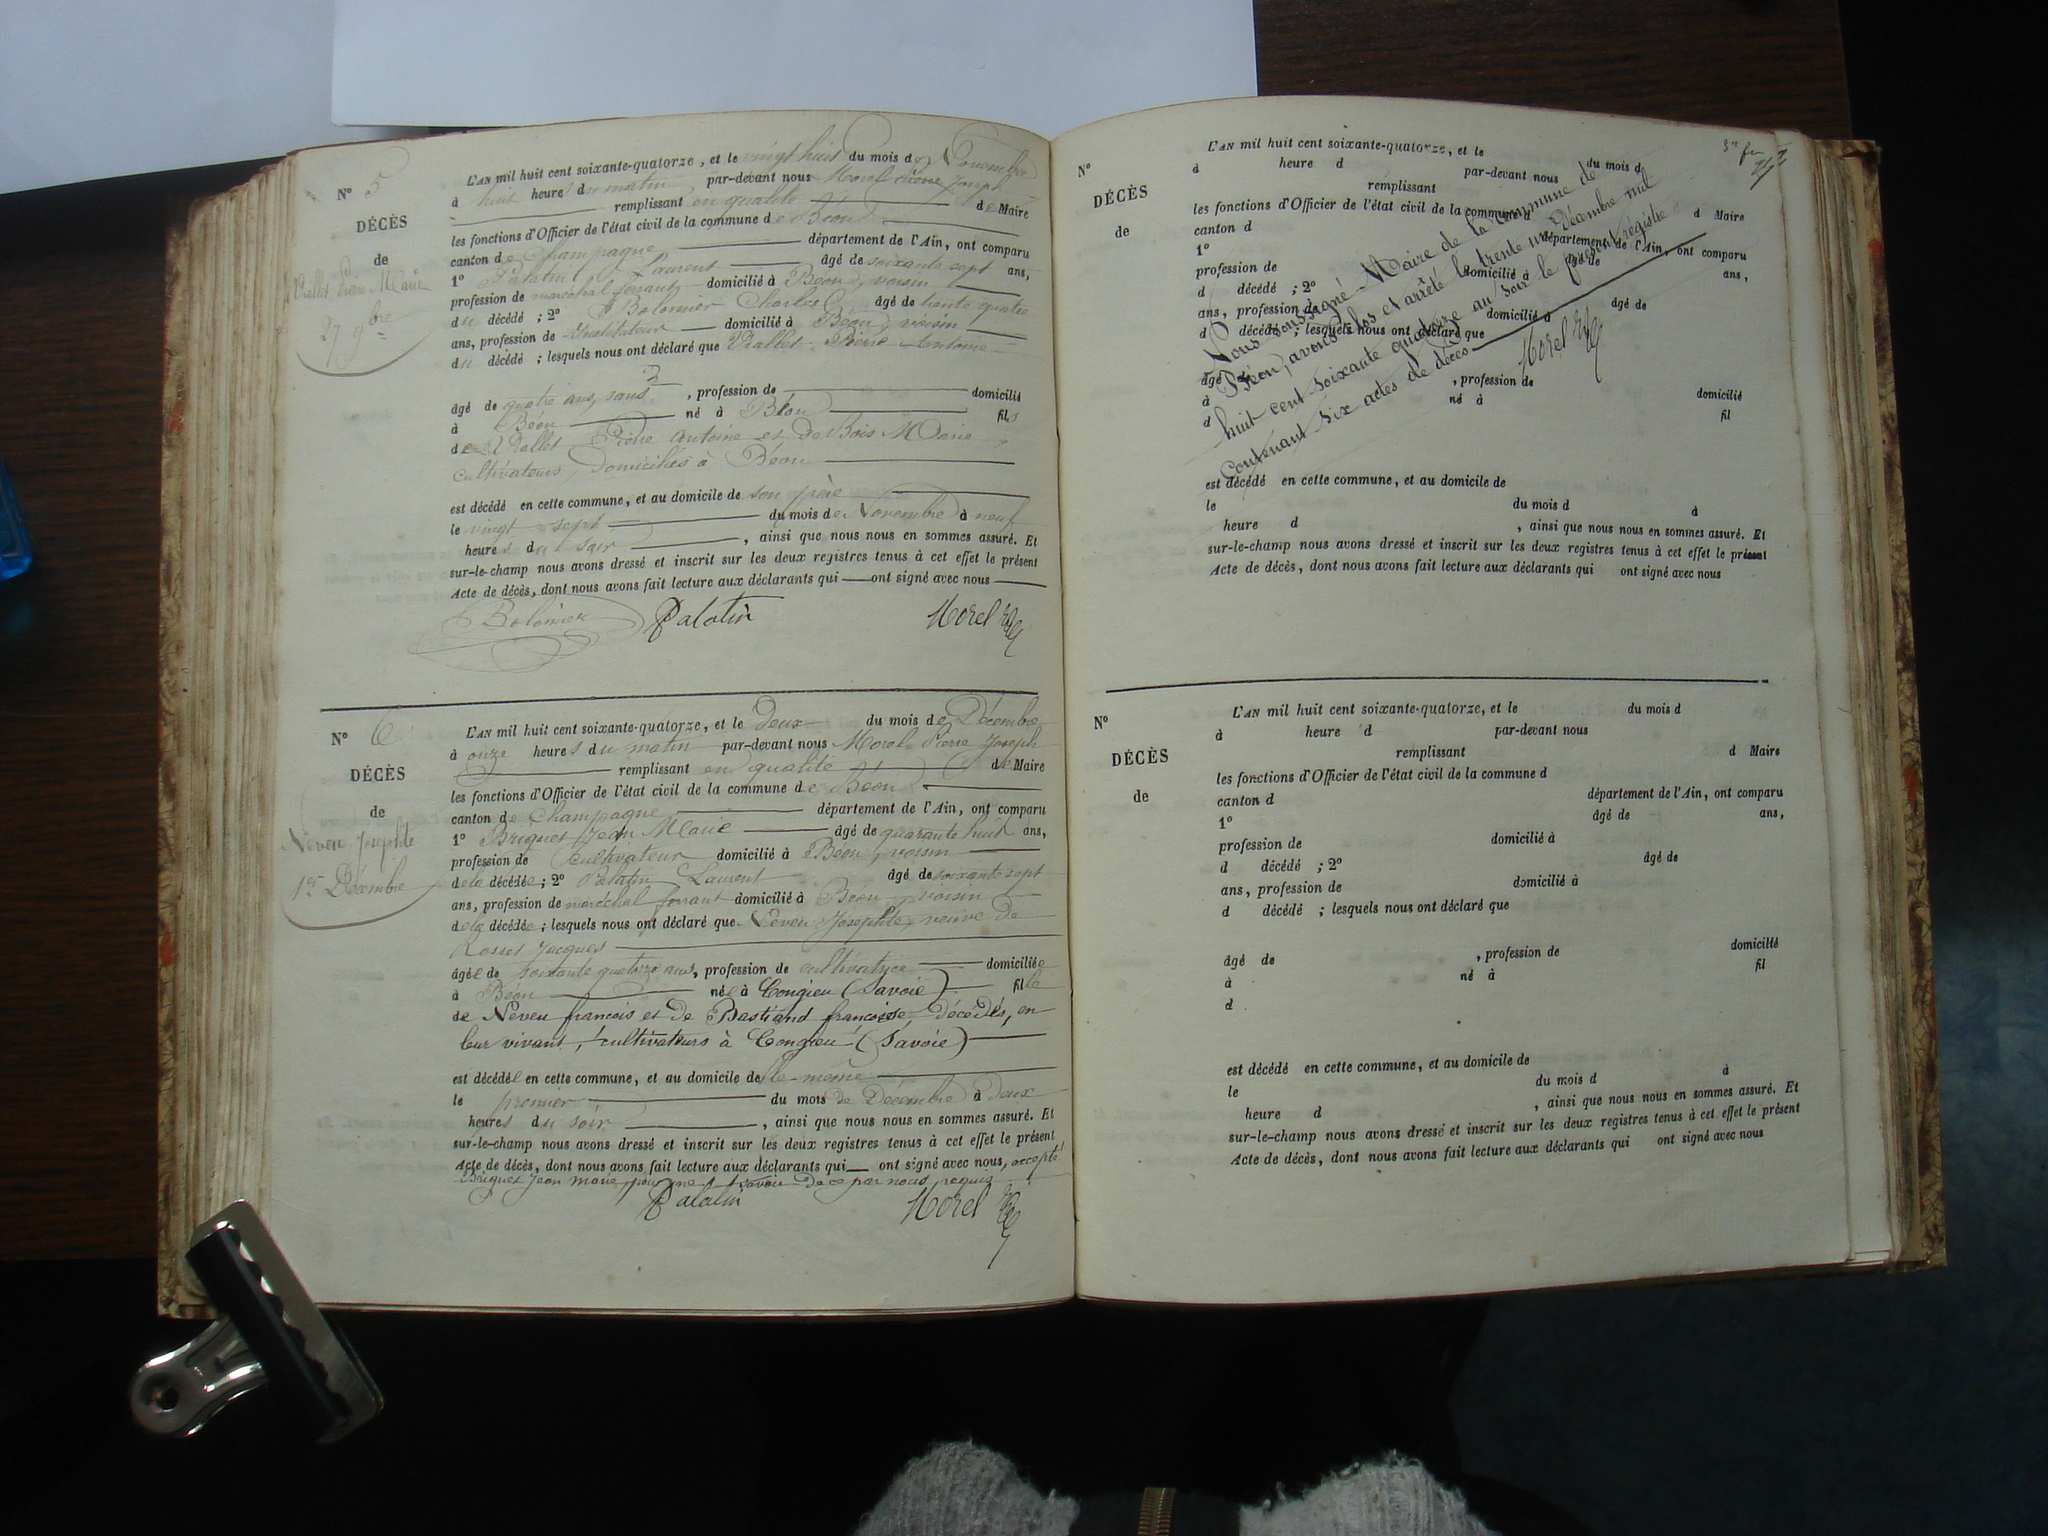 N° 5
DÉCÈS
de
27 9bre
L'AN mil huit cent soixante-quatorze, et le vingt huit du mois de Novembre
à huit heures du matin par-devant nous Morel Pierre Joseph
remplissant en qualité de Maire
les fonctions d'Officier de l'état civil de la commune de Béon
canton de Champagne département de l'Ain, ont comparu
1° Palatin Laurent âgé de soixante sept ans,
profession de maréchal ferrant domicilié à Béon, voisin
du décédé ; 2° Bolonier Charles âgé de trente quatre
ans, profession de Instituteur domicilié à Béon, voisin
du décédé ; lesquels nous ont déclaré que Pierre Antoine
âgé de quatre ans, sans , profession de domicilié
à Béon né à Béon fils
de Pierre Antoine et de Marie
cultivateurs domiciliés à Béon
est décédé en cette commune, et au domicile de son père
le vingt sept du mois de Novembre à neuf
heures du soir , ainsi que nous nous en sommes assuré. Et
sur-le-champ nous avons dressé et inscrit sur les deux registres tenus à cet effet le présent
Acte de décès, dont nous avons fait lecture aux déclarants qui ont signé avec nous
Bolonier Palatin Morel
N° 6
DÉCÈS
de
Neveu Josephte
1er Décembre
L'AN mil huit cent soixante-quatorze, et le deux du mois de Décembre
à onze heures du matin par-devant nous Morel Pierre Joseph
remplissant en qualité de Maire
les fonctions d'Officier de l'état civil de la commune de Béon
canton de Champagne département de l'Ain, ont comparu
1° Briguet Jean Marie âgé de quarante huit ans,
profession de cultivateur domicilié à Béon, voisin
de la décédée ; 2° Palatin Laurent âgé de soixante sept
ans, profession de maréchal ferrant domicilié à Béon voisin
de la décédée ; lesquels nous ont déclaré que Neveu Josephte, veuve de
Rosset Jacques
âgée de soixante quatorze ans, profession de cultivatrice domiciliée
à Béon née à Congieu (Savoie) fille
de Neveu françois et de Bastiand françoise, Décédés, en
leur vivant, cultivateurs à Congieu (Savoie)
est décédée en cette commune, et au domicile d'elle-même
le premier du mois de Décembre à deux
heures du soir , ainsi que nous nous en sommes assuré. Et
sur-le-champ nous avons dressé et inscrit sur les deux registres tenus à cet effet le présent
Acte de décès, dont nous avons fait lecture aux déclarants qui ont signé avec nous, excepté
Briguet Jean Marie, pour ne savoir de ce par nous requis
Palatin Morel
N°
DÉCÈS
de
L'AN mil huit cent soixante-quatorze, et le du mois d
à heure d par-devant nous
remplissant d Maire
les fonctions d'Officier de l'état civil de la commune d
canton d département de l'Ain, ont comparu
1° âgé de ans,
profession de domicilié à
d décédé ; 2° âgé de
ans, profession de domicilié à
d décédé ; lesquels nous ont déclaré que
Nous soussigné Maire de la commune de
Béon, avons clos et arrêté le trente un Décembre mil
huit cent soixante quatorze au soir le présent régistre
Contenant six actes de décès
Morel
âgé de , profession de domicilié
à né à fil
d
est décédé en cette commune, et au domicile de
le du mois d à
heure d , ainsi que nous nous en sommes assuré. Et
sur-le-champ nous avons dressé et inscrit sur les deux registres tenus à cet effet le présent
Acte de décès, dont nous avons fait lecture aux déclarants qui ont signé avec nous
N°
DÉCÈS
de
L'AN mil huit cent soixante-quatorze, et le du mois d
à heure d par-devant nous
remplissant d Maire
les fonctions d'Officier de l'état civil de la commune d
canton d département de l'Ain, ont comparu
1° âgé de ans,
profession de domicilié à
d décédé ; 2° âgé de
ans, profession de domicilié à
d décédé ; lesquels nous ont déclaré que
âgé de , profession de domicilié
à né à fil
d
est décédé en cette commune, et au domicile de
le du mois d à
heure d , ainsi que nous nous en sommes assuré. Et
sur-le-champ nous avons dressé et inscrit sur les deux registres tenus à cet effet le présent
Acte de décès, dont nous avons fait lecture aux déclarants qui ont signé avec nous